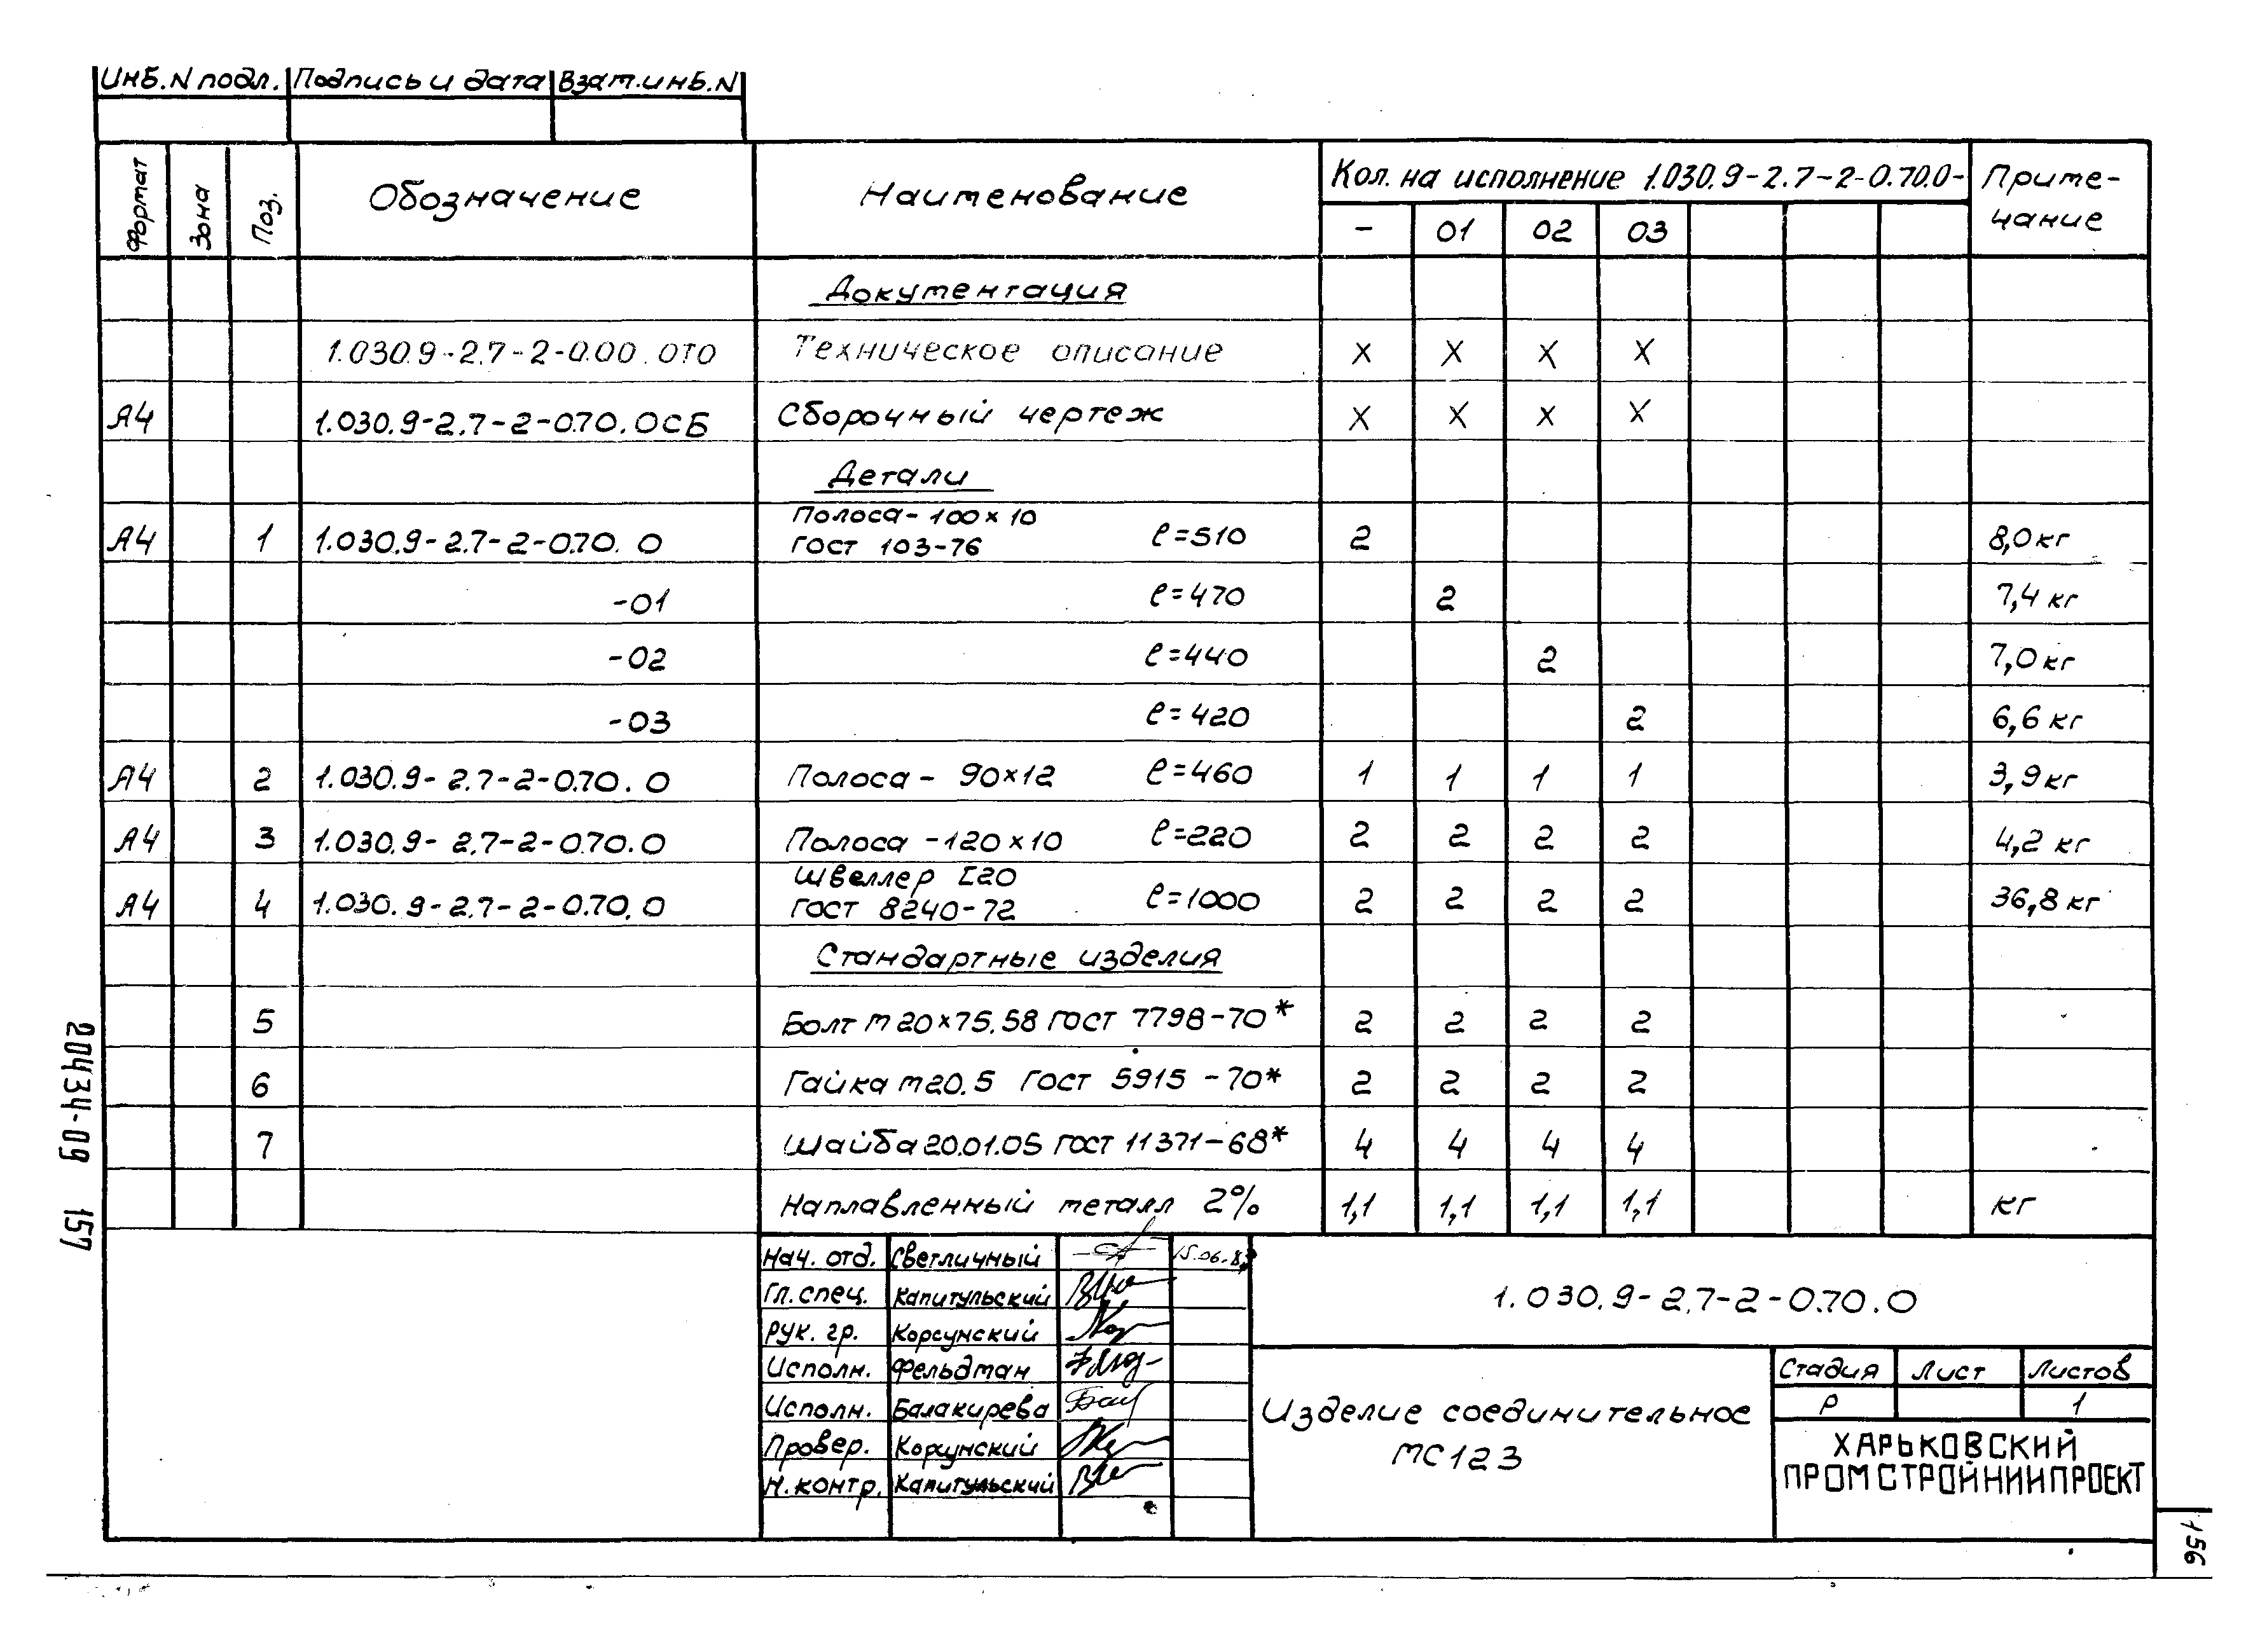 Инв. N подл. Подпись и дата Взам. инв. N
Формат Зона Поз. Обозначение Наименование Кол. на исполнение 1.030.9-2.7-2-0.70.0- Приме-
чание
- 01 02 03
Документация
1.030.9-2.7-2-0.00.0ТО Техническое описание X X X X
А4 1.030.9-2.7-2-0.70.0СБ Сборочный чертеж X X X X
Детали
Полоса - 100×10
А4 1 1.030.9-2.7-2-0.70.0 ГОСТ 103-76 ℓ=510 2 8,0 кг
-01 ℓ=470 2 7,4 кг
-02 ℓ=440 2 7,0 кг
-03 ℓ=420 2 6,6 кг
А4 2 1.030.9-2.7-2-0.70.0 Полоса - 90×12 ℓ=460 1 1 1 1 3,9 кг
А4 3 1.030.9-2.7-2-0.70.0 Полоса -120×10 ℓ=220 2 2 2 2 4,2 кг
Швеллер [20
А4 4 1.030.9-2.7-2-0.70.0 ГОСТ 8240-72 ℓ=1000 2 2 2 2 36,8 кг
Стандартные изделия
5 Болт М20×75.58 ГОСТ 7798-70* 2 2 2 2
6 Гайка М20.5 ГОСТ 5915-70* 2 2 2 2
7 Шайба 20.01.05 ГОСТ 11371-68* 4 4 4 4
Наплавленный металл 2% 1,1 1,1 1,1 1,1 кг
Нач. отд. Светличный
Гл. спец. Капитульский
Рук. гр. Корсунский
Исполн. Фельдман
Исполн. Балакирева
Провер. Корсунский
Н. контр. Капитульский
1.030.9-2.7-2-0.70.0
Изделие соединительное
МС123
Стадия Лист Листов
Р 1
ХАРЬКОВСКИЙ
ПРОМСТРОЙНИИПРОЕКТ
20434-09 157
156